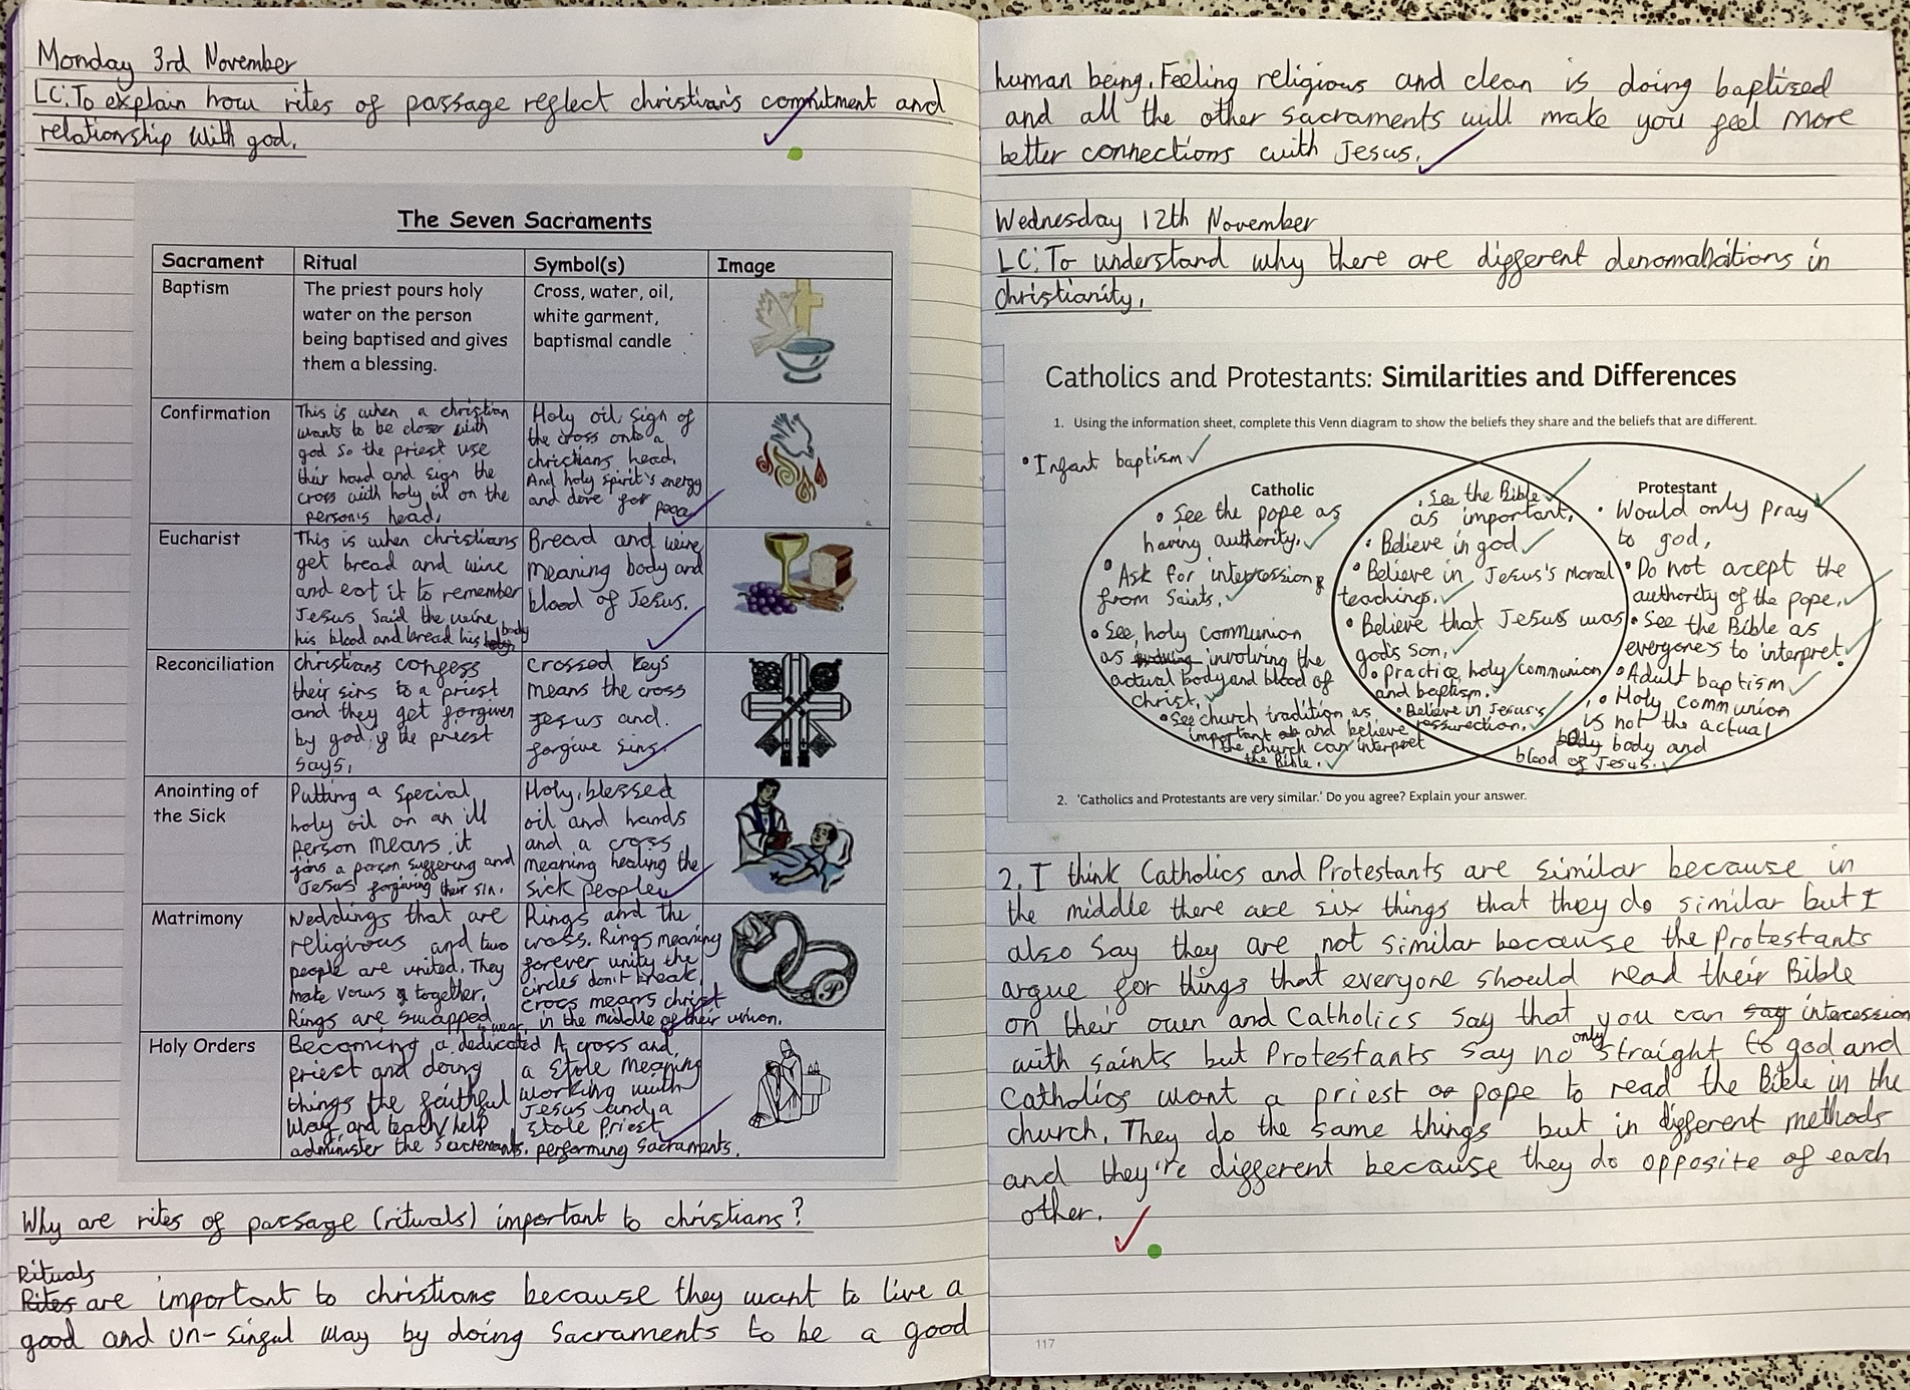 Monday 3rd November
LC: To explain how rites of passage reflect christian's commitment and
relationship with god.
The Seven Sacraments
Sacrament Ritual Symbol(s) Image
Baptism
The priest pours holy
water on the person
being baptised and gives
them a blessing.
Cross, water, oil,
white garment,
baptismal candle
Confirmation
This is when a christian
wants to be closer with
god so the priest use
their hand and sign the
cross with holy oil on the
person's head.
Holy oil, sign of
the cross onto a
christians head.
And holy spirit's energy
and dove for peace
Eucharist
This is when christians
get bread and wine
and eat it to remember
Jesus said the wine
his blood and bread his body
Bread and wine
meaning body and
blood of Jesus.
Reconciliation
christians confess
their sins to a priest
and they get forgiven
by god if the priest
says,
crossed keys
means the cross
Jesus and.
forgive sins.
Anointing of
the Sick
Putting a special
holy oil on an ill
person means it
joins a person suffering and
Jesus forgiving their sin.
Holy, blessed
oil and hands
and a cross
meaning healing the
sick people
Matrimony
Weddings that are
religious and two
people are united. They
make vows together.
Rings are swapped
Rings and the
cross. Rings meaning
forever unity the
circles don't break
cross means christ
in the middle of their union.
Holy Orders
Becoming a dedicated
priest and doing
things the faithful
way and teach/help
administer the sacrements.
A cross and
a stole meaning
working with
Jesus and a
stole Priest
performing sacraments.
Why are rites of passage (rituals) important to christians?
Rituals
Rites are important to christians because they want to live a
good and un-sinful way by doing sacraments to be a good
human being. Feeling religious and clean is doing baptised
and all the other sacraments will make you feel more
better connections with Jesus.
Wednesday 12th November
LC: To understand why there are different denomabations in
christianity.
Catholics and Protestants: Similarities and Differences
1. Using the information sheet, complete this Venn diagram to show the beliefs they share and the beliefs that are different.
• Infant baptism
Catholic
• See the pope as
having authority.
• Ask for
from saints.
• See holy communion
as involving the
actual body and blood of
christ.
• See church tradition as
important and believe
the church can interpret
the Bible.
• See the Bible
as important.
• Believe in god
• Believe in Jesus's moral
teachings.
• Believe that Jesus was
god's son.
• Practice holy communion
and baptism.
• Believe in Jesus's
ressurection.
Protestant
• Would only pray
to god.
• Do not accept the
authority of the pope.
• See the Bible as
everyone's to interpret.
• Adult baptism
• Holy communion
is not the actual
body body and
blood of Jesus.
2. 'Catholics and Protestants are very similar.' Do you agree? Explain your answer.
2. I think Catholics and Protestants are similar because in
the middle there are six things that they do similar but I
also say they are not similar because the Protestants
argue for things that everyone should read their Bible
on their own and Catholics say that you can say intercession
with saints but Protestants say no only straight to god and
Catholics want a priest or pope to read the Bible in the
church. They do the same things but in different methods
and they're different because they do opposite of each
other.
117